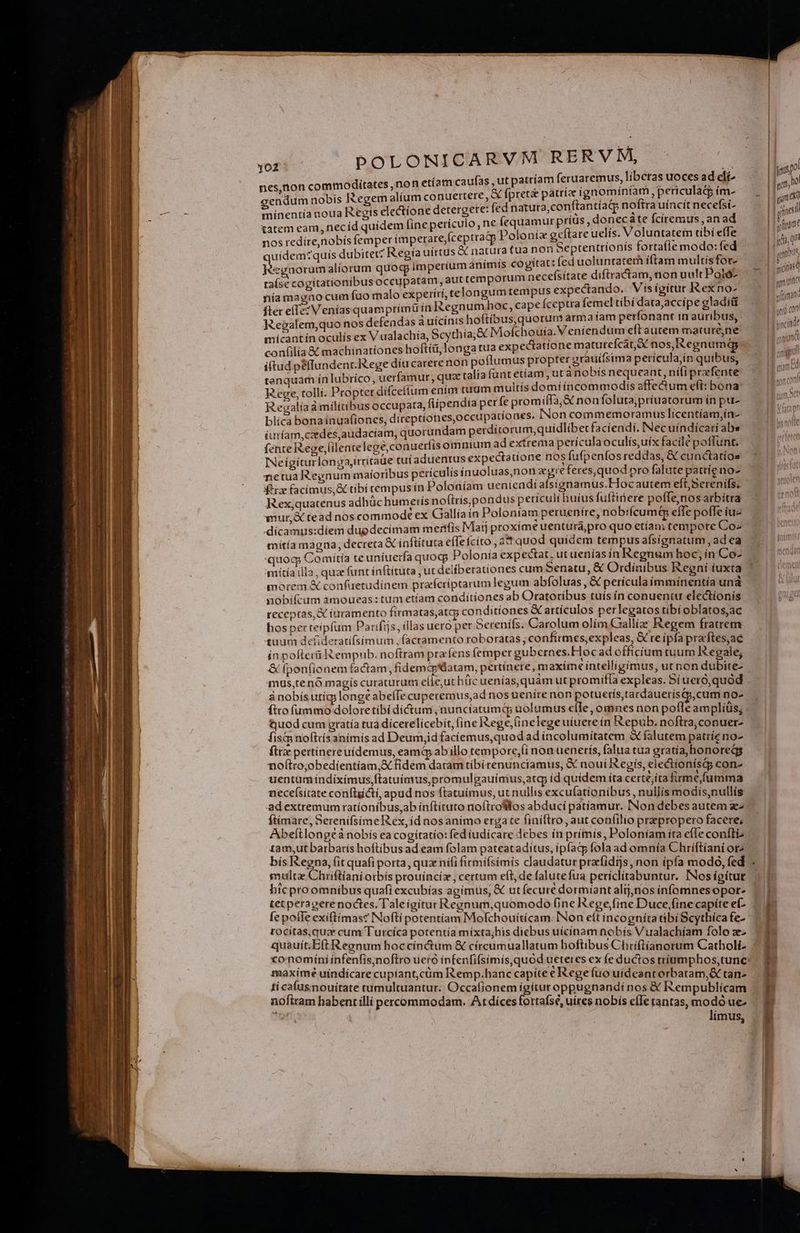 102 POLONICARVM RERVM,
nes, non commoditates, non etiam causas, ut patriam seruaremus, liberas uoces ad eli-
gendum nobis Regem alium conuertere, & spretæ patriæ ignominiam, periculaq; im-
minentia noua Regis electione detergere: sed natura, constantiaq; nostra uincit necessi-
tatem eam, nec id quidem sine periculo, ne sequamur priùs, donec à te sciremus, an ad
nos redire, nobis semper imperare, sceptraq; Poloniæ gestare uelis. Voluntatem tibi esse
quidem? quis dubitet? Regia uirtus & natura tua non Septentrionis fortasse modo: sed
Regnorum aliorum quoq; imperium animis cogitat: sed uoluntatem istam multis for-
tasse cogitationibus occupatam, aut temporum necessitate distractam, non uult Polo-
nia magno cum suo malo experiri, te longum tempus expectando. Vis igitur Rex no-
ster esse? Venias quamprimũ in Regnum hoc, cape sceptra semel tibi data, accipe gladiũ
Regalem, quo nos defendas à uicinis hostibus, quorum arma iam personant in auribus,
micant in oculis ex Vualachia, Scythia, & Moschouia. Veniendum est autem maturè, ne
consilia & machinationes hostiũ, longa tua expectatione maturescãt, & nos, Regnumq;
istud pessundent. Rege diu carere non possumus propter grauissima pericula, in quibus,
tanquam in lubrico, uersamur, quæ talia sunt etiam, ut à nobis nequeant, nisi præsente
Rege, tolli. Propter discessum enim tuum multis domi incommodis affectum est: bona
Regalia à militibus occupata, stipendia per se promissa, & non soluta, priuatorum in pu-
blica bona inuasiones, direptiones, occupationes. Non commemoramus licentiam, in-
iuriam, cædes, audaciam, quorundam perditorum, quidlibet faciendi. Nec uindicari abs
sente Rege, silente lege, conuersis omnium ad extrema pericula oculis, uix facilè possunt.
Ne igitur longa, irritaue tui aduentus expectatione nos suspensos reddas, & cunctatio-
ne tua Regnum maioribus periculis inuoluas, non ægrè feres, quod pro salute patriæ no-
stræ facimus, & tibi tempus in Poloniam ueniendi assignamus. Hoc autem est, Serenis.
Rex, quatenus adhûc humeris nostris, pondus periculi huius sustinere posse, nos arbitra
mur, & te ad nos commodè ex Gallia in Poloniam peruenire, nobiscumq; esse posse iu-
dicamus: diem duodecimam mensis Maij proximè uenturã, pro quo etiam tempore Co-
mitia magna, decreta & instituta esse scito, ad quod quidem tempus assignatum, ad ea
quoq; Comitia te uniuersa quoq; Polonia expectat, ut uenias in Regnum hoc, in Co-
mitia illa, quæ sunt instituta, ut deliberationes cum Senatu, & Ordinibus Regni iuxta
morem & consuetudinem præscriptarum legum absoluas, & pericula imminentia unà
nobiscum amoueas: tum etiam conditiones ab Oratoribus tuis in conuentu electionis
receptas, & iuramento firmatas, atq; conditiones & articulos per legatos tibi oblatos, ac
hos per teipsum Parisijs, illas uero per Serenis. Carolum olim Galliæ Regem fratrem
tuum desideratissimum, sacramento roboratas, confirmes, expleas, & re ipsa præstes, ac
in posterũ Rempub. nostram præsens semper gubernes. Hoc ad officium tuum Regale,
& sponsionem factam, fidemq; datam, pertinere, maximè intelligimus, ut non dubite-
mus, te nõ magis curaturum esse, ut hûc uenias, quàm ut promissa expleas. Si uerò, quod
à nobis utiq; longè abesse cuperemus, ad nos uenire non potueris, tardauerisq;, cum no-
stro summo dolore tibi dictum, nunciatumq; uolumus esse, omnes non posse ampliùs,
quod cum gratia tua dicere licebit, sine Rege, sine lege uiuere in Repub. nostra, conuer-
sisq; nostris animis ad Deum, id faciemus, quod ad incolumitatem & salutem patriæ no-
stræ pertinere uidemus, eamq; ab illo tempore, si non ueneris, salua tua gratia, honoreq;
nostro, obedientiam, & fidem datam tibi renunciamus, & noui Regis, electionisq; con-
uentum indiximus, statuimus, promulgauimus, atq; id quidem ita certè, ita firmè, summa
necessitate constricti, apud nos statuimus, ut nullis excusationibus, nullis modis, nullis
ad extremum rationibus, ab instituto nostro nos abduci patiamur. Non debes autem æ-
stimare, Serenissime Rex, id nos animo erga te sinistro, aut consilio præpropero facere,
Abest longè à nobis ea cogitatio: sed iudicare debes in primis, Poloniam ita esse consti-
tam, ut barbaris hostibus ad eam solam pateat aditus, ipsaq; sola ad omnia Christiani or-
bis Regna, sit quasi porta, quæ nisi firmissimis claudatur præsidijs, non ipsa modò, sed
multæ Christiani orbis prouinciæ, certum est, de salute sua periclitabuntur. Nos igitur
hîc pro omnibus quasi excubias agimus, & ut securè dormiant alij, nos insomnes opor-
tet peragere noctes. Tale igitur Regnum, quomodo sine Rege, sine Duce, sine capite es-
se posse existimas? Nosti potentiam Moschouiticam. Non est incognita tibi Scythica fe-
rocitas, quæ cum Turcica potentia mixta, his diebus uicinam nobis Vualachiam solo æ-
quauit. Est Regnum hoc cinctum & circumuallatum hostibus Christianorum Catholi-
co nomini infensis, nostro uerò infensissimis, quòd ueteres ex se ductos triumphos, tunc
maximè uindicare cupiant, cùm Remp. hanc capite è Rege suo uideant orbatam, & tan-
ti casus nouitate tumultuantur. Occasionem igitur oppugnandi nos & Rempublicam
nostram habent illi percommodam. At dices fortasse, uires nobis esse tantas, modò ue-
limus,